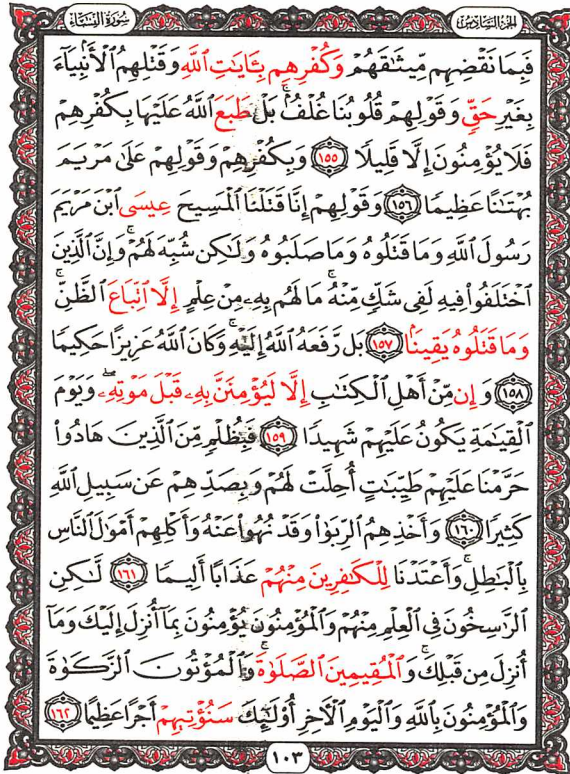 الجزء السادس سورة النساء
فَبِمَا نَقْضِهِم مِّيثَٰقَهُمْ وَكُفْرِهِم بِـَٔايَٰتِ ٱللَّهِ وَقَتْلِهِمُ ٱلْأَنۢبِيَآءَ
بِغَيْرِ حَقٍّ وَقَوْلِهِمْ قُلُوبُنَا غُلْفٌۢ ۚ بَلْ طَبَعَ ٱللَّهُ عَلَيْهَا بِكُفْرِهِمْ
فَلَا يُؤْمِنُونَ إِلَّا قَلِيلًا ١٥٥ وَبِكُفْرِهِمْ وَقَوْلِهِمْ عَلَىٰ مَرْيَمَ
بُهْتَٰنًا عَظِيمًا ١٥٦ وَقَوْلِهِمْ إِنَّا قَتَلْنَا ٱلْمَسِيحَ عِيسَى ٱبْنَ مَرْيَمَ
رَسُولَ ٱللَّهِ وَمَا قَتَلُوهُ وَمَا صَلَبُوهُ وَلَٰكِن شُبِّهَ لَهُمْ ۚ وَإِنَّ ٱلَّذِينَ
ٱخْتَلَفُوا۟ فِيهِ لَفِى شَكٍّ مِّنْهُ ۚ مَا لَهُم بِهِۦ مِنْ عِلْمٍ إِلَّا ٱتِّبَاعَ ٱلظَّنِّ ۚ
وَمَا قَتَلُوهُ يَقِينًۢا ١٥٧ بَل رَّفَعَهُ ٱللَّهُ إِلَيْهِ ۚ وَكَانَ ٱللَّهُ عَزِيزًا حَكِيمًا
١٥٨ وَإِن مِّنْ أَهْلِ ٱلْكِتَٰبِ إِلَّا لَيُؤْمِنَنَّ بِهِۦ قَبْلَ مَوْتِهِۦ ۖ وَيَوْمَ
ٱلْقِيَٰمَةِ يَكُونُ عَلَيْهِمْ شَهِيدًا ١٥٩ فَبِظُلْمٍ مِّنَ ٱلَّذِينَ هَادُوا۟
حَرَّمْنَا عَلَيْهِمْ طَيِّبَٰتٍ أُحِلَّتْ لَهُمْ وَبِصَدِّهِمْ عَن سَبِيلِ ٱللَّهِ
كَثِيرًا ١٦٠ وَأَخْذِهِمُ ٱلرِّبَوٰا۟ وَقَدْ نُهُوا۟ عَنْهُ وَأَكْلِهِمْ أَمْوَٰلَ ٱلنَّاسِ
بِٱلْبَٰطِلِ ۚ وَأَعْتَدْنَا لِلْكَٰفِرِينَ مِنْهُمْ عَذَابًا أَلِيمًا ١٦١ لَّٰكِنِ
ٱلرَّٰسِخُونَ فِى ٱلْعِلْمِ مِنْهُمْ وَٱلْمُؤْمِنُونَ يُؤْمِنُونَ بِمَآ أُنزِلَ إِلَيْكَ وَمَآ
أُنزِلَ مِن قَبْلِكَ ۚ وَٱلْمُقِيمِينَ ٱلصَّلَوٰةَ ۚ وَٱلْمُؤْتُونَ ٱلزَّكَوٰةَ
وَٱلْمُؤْمِنُونَ بِٱللَّهِ وَٱلْيَوْمِ ٱلْـَٔاخِرِ أُو۟لَٰٓئِكَ سَنُؤْتِيهِمْ أَجْرًا عَظِيمًا ١٦٢
١٠٣